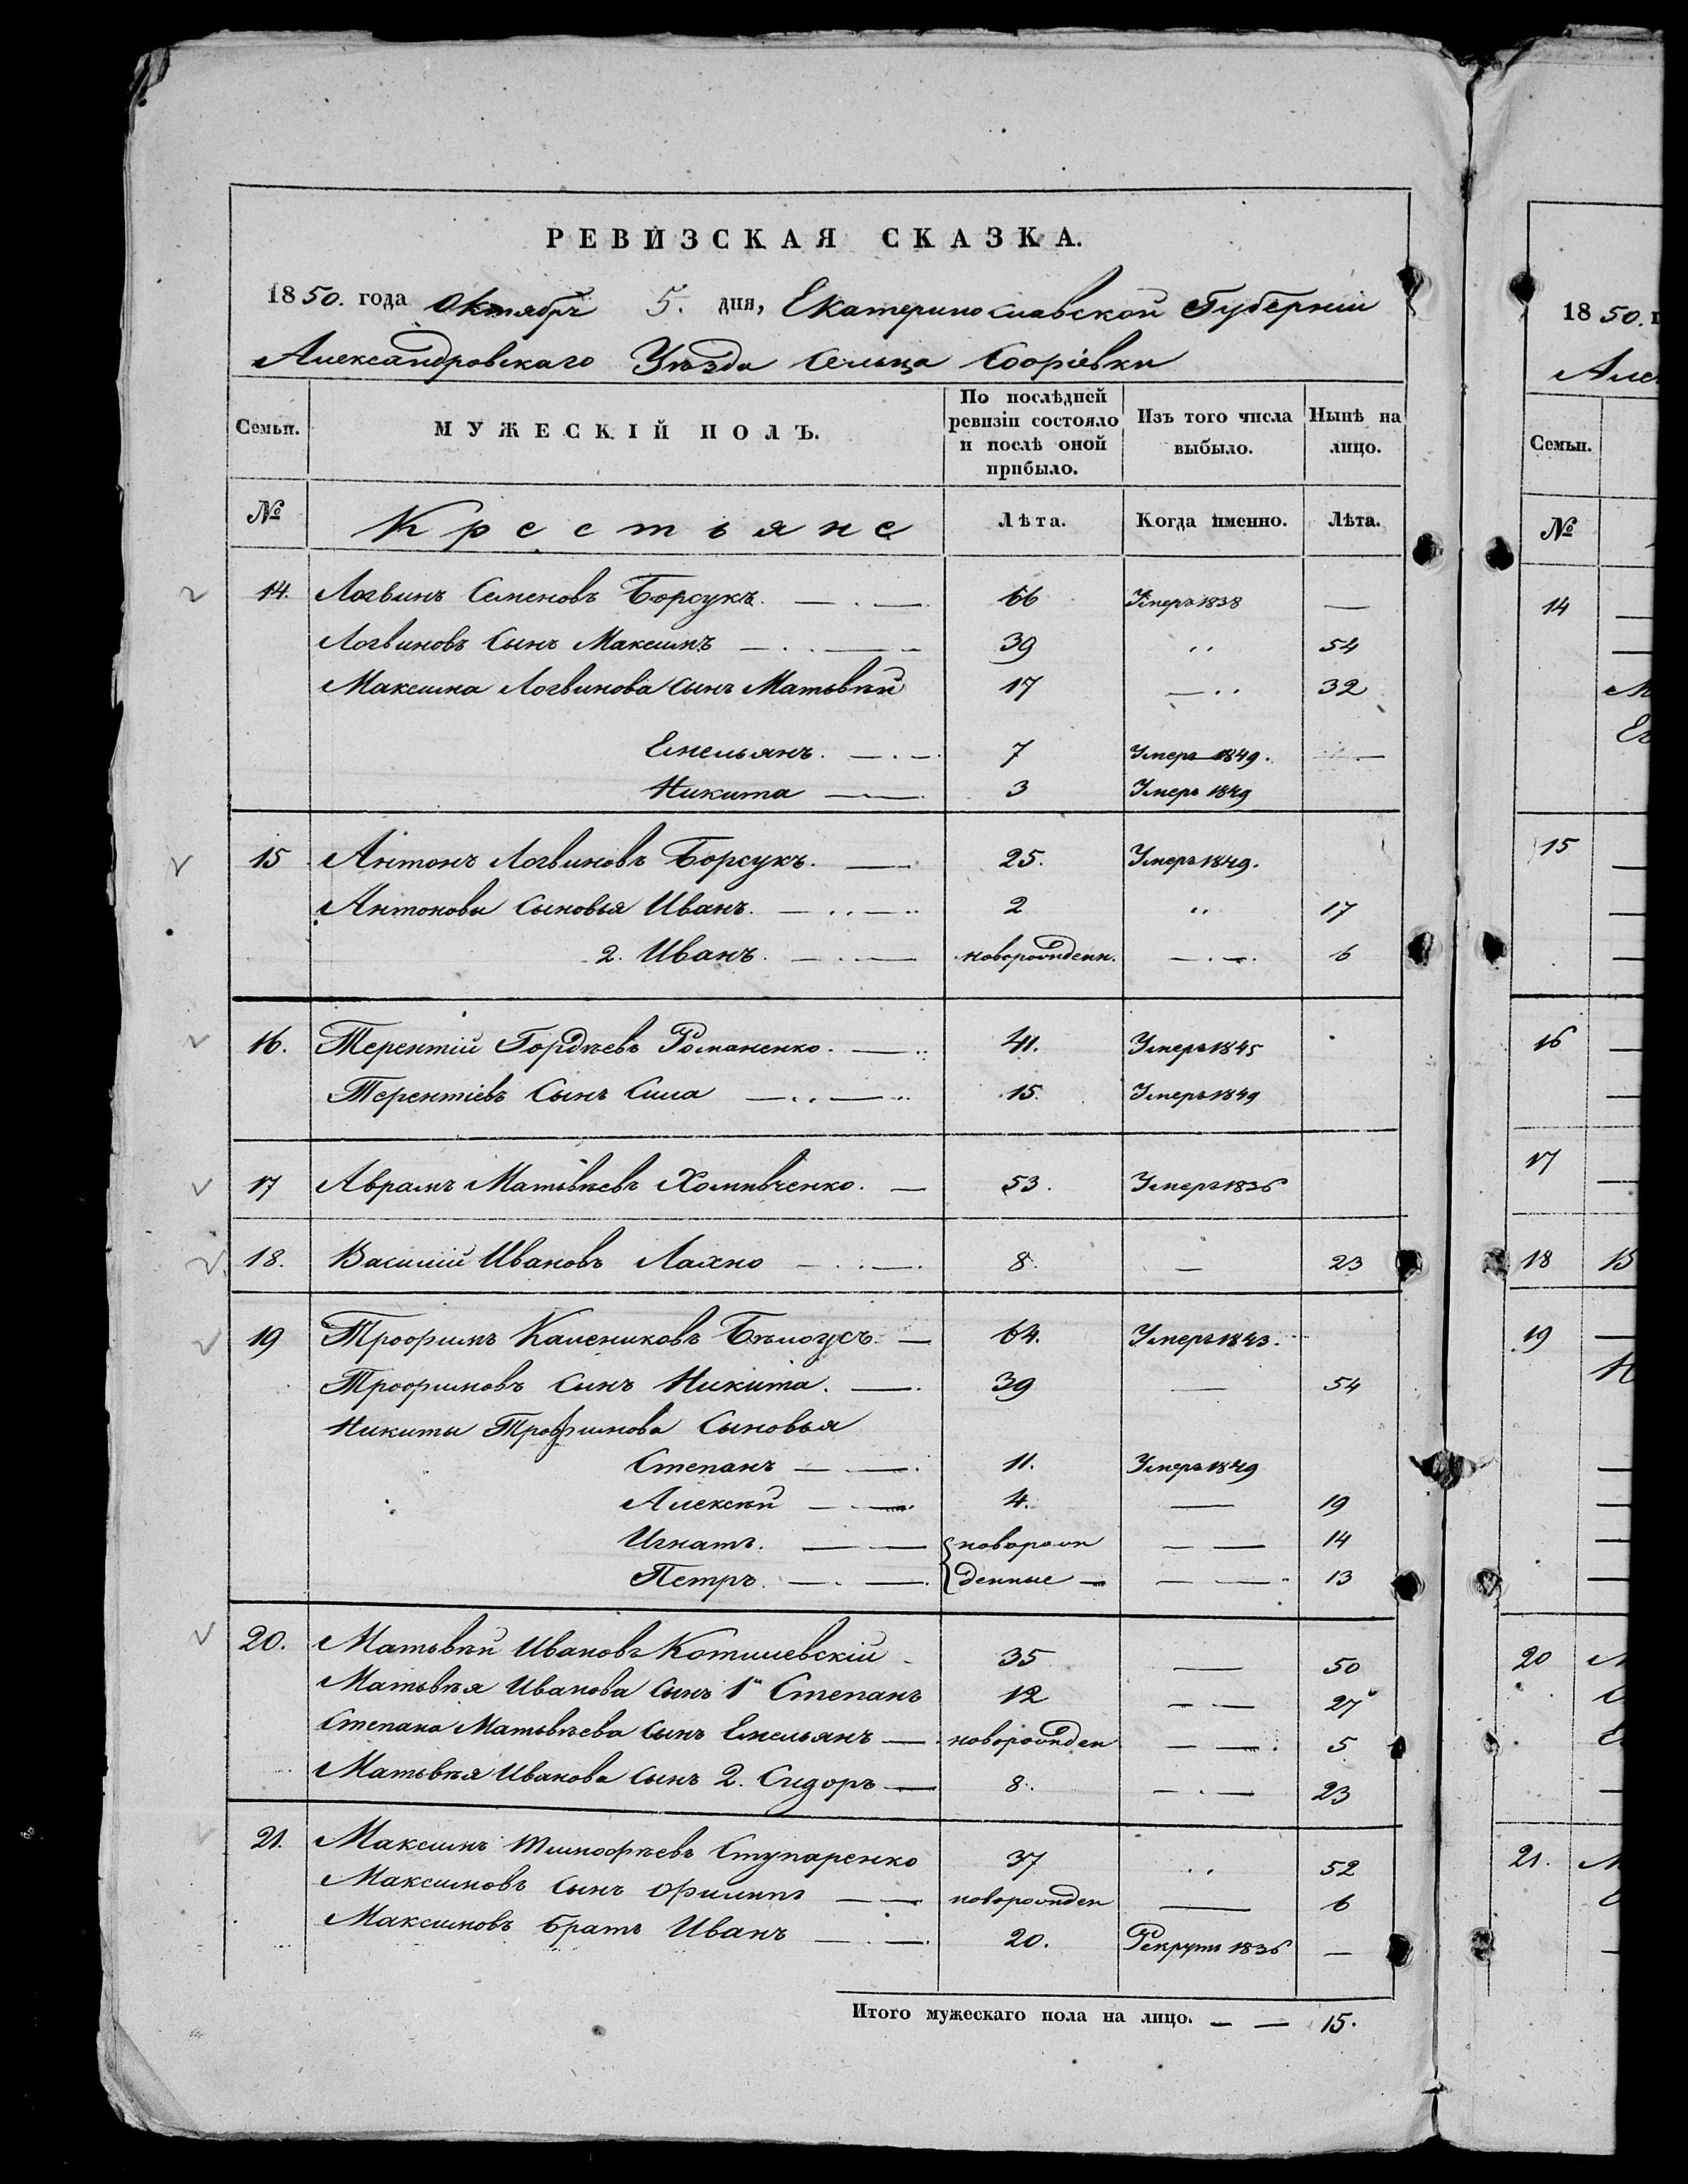 РЕВИЗСКАЯ СКАЗКА.
1850. года Октября 5. дня, Екатеринославской Губерніи
Александровскаго Уѣзда Сельца Софіевки
Семьи. МУЖЕСКІЙ ПОЛЪ. По послѣдней ревизіи состояло и послѣ оной прибыло. Изъ того числа выбыло. Нынѣ на лицо.
№ Крестьяне Лѣта. Когда именно. Лѣта.
14. Логвинъ Семеновъ Борсукъ. 66 Умеръ 1838 —
Логвиновъ Сынъ Максимъ 39 " 54
Максима Логвинова сынъ Матвѣй 17 — " 32
Емельянъ. 7 Умеръ 1849. —
Никита 3 Умеръ 1849
15 Антонъ Логвиновъ Борсукъ. 25. Умеръ 1849.
Антоновы Сыновья Иванъ. 2 " 17
2. Иванъ. новорожденн. — 6
16. Терентій Гордѣевъ Романенко. 41. Умеръ 1845
Терентіевъ Сынъ Сила 15. Умеръ 1849
17 Аврамъ Матвѣевъ 53. Умеръ 1836
18. Василій Ивановъ Лахно 8. — 23
19 Трофимъ Калениковъ Бѣлоусъ. 64. Умеръ 1843.
Трофимовъ Сынъ Никита. 39 — 54
Никиты Трофимова Сыновья
Степанъ 11. Умеръ 1849
Алексѣй 4. — 19
Игнатъ. новорож — 14
Петръ. денные — 13
20. Матвѣй Ивановъ Котлиевскій 35 — 50
Матвѣя Иванова Сынъ 1й Степанъ 12 — 27
Степана Матвѣева Сынъ Емельянъ новорожден — 5
Матвѣя Иванова Сынъ 2. Сидоръ 8. — 23
21. Максимъ Тимофѣевъ Ступаренко 37 " 52
Максимовъ Сынъ Филипъ новорожден — 6
Максимовъ Братъ Иванъ 20. Рекрутъ 1836 —
Итого мужескаго пола на лицо. — — 15.
1850. г
Алек
Семьи.
№
14
15
16
17
18 В
19
20
21.